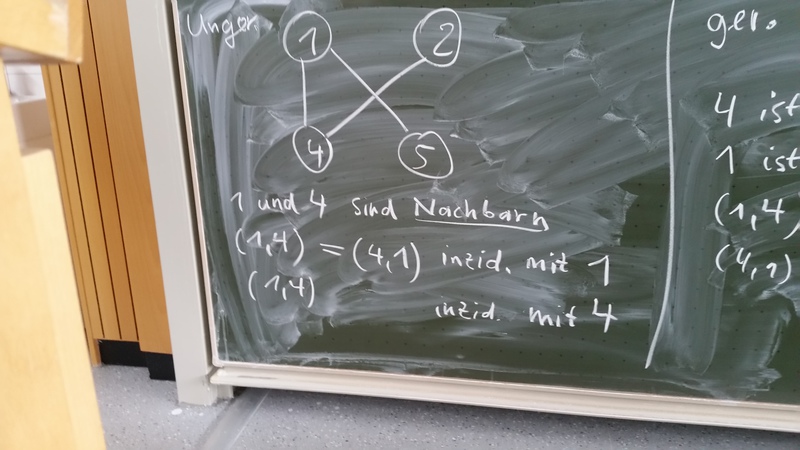 Unger.
1 2
4 5
1 und 4 sind Nachbarn
(1,4) = (4,1) inzid. mit 1
(1,4) inzid. mit 4
ger.
4 ist
1 ist
(1,4)
(4,1)